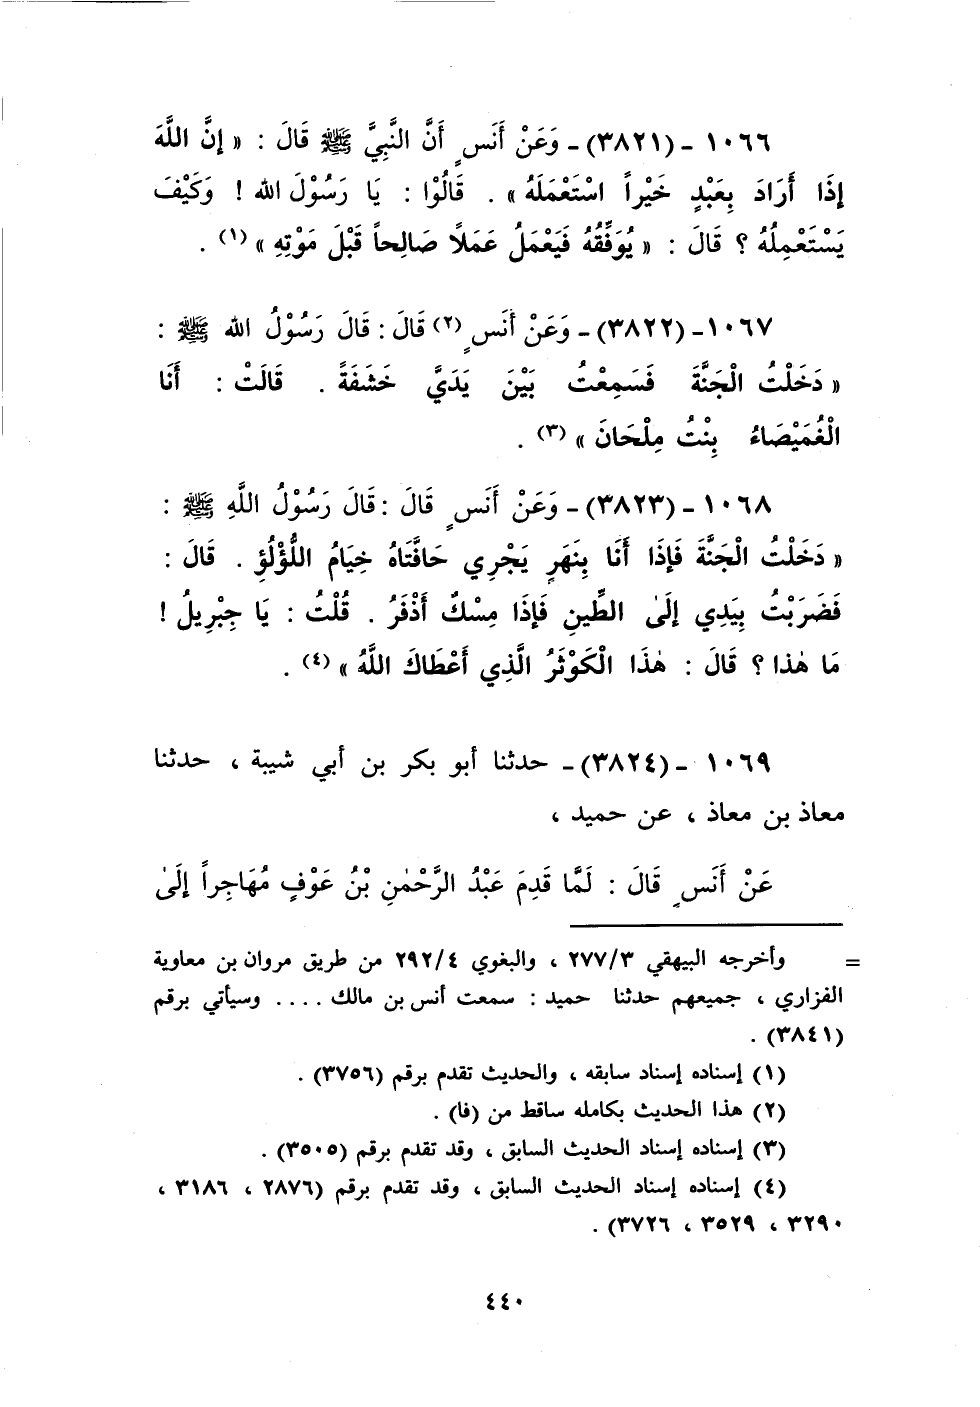 ١٠٦٦ -(٣٨٢١)- وَعَنْ أَنَسٍ أَنَّ النَّبِيَّ ﷺ قَالَ : « إِنَّ اللَّهَ
إِذَا أَرَادَ بِعَبْدٍ خَيْراً اسْتَعْمَلَهُ » . قَالُوْا : يَا رَسُوْلَ الله ! وَكَيْفَ
يَسْتَعْمِلُهُ ؟ قَالَ : « يُوَفِّقُهُ فَيَعْمَلُ عَمَلًا صَالِحاً قَبْلَ مَوْتِهِ » (١) .
١٠٦٧ -(٣٨٢٢)- وَعَنْ أَنَسٍ (٢) قَالَ : قَالَ رَسُوْلُ الله ﷺ :
« دَخَلْتُ الْجَنَّةَ فَسَمِعْتُ بَيْنَ يَدَيَّ خَشَفَةً . قَالَتْ : أَنَا
الْغُمَيْصَاءُ بِنْتُ مِلْحَانَ » (٣) .
١٠٦٨ -(٣٨٢٣)- وَعَنْ أَنَسٍ قَالَ : قَالَ رَسُوْلُ اللَّهِ ﷺ :
« دَخَلْتُ الْجَنَّةَ فَإِذَا أَنَا بِنَهَرٍ يَجْرِي حَافَّتَاهُ خِيَامُ اللُّؤْلُؤِ . قَالَ :
فَضَرَبْتُ بِيَدِي إِلَىٰ الطِّينِ فَإِذَا مِسْكٌ أَذْفَرُ . قُلْتُ : يَا جِبْرِيلُ !
مَا هٰذا ؟ قَالَ : هٰذَا الْكَوْثَرُ الَّذِي أَعْطَاكَ اللَّهُ » (٤) .
١٠٦٩ -(٣٨٢٤)- حدثنا أبو بكر بن أبي شيبة ، حدثنا
معاذ بن معاذ ، عن حميد ،
عَنْ أَنَسٍ قَالَ : لَمَّا قَدِمَ عَبْدُ الرَّحْمٰنِ بْنُ عَوْفٍ مُهَاجِراً إِلَىٰ
= وأخرجه البيهقي ٢٧٧/٣ ، والبغوي ٢٩٢/٤ من طريق مروان بن معاوية
الفزاري ، جميعهم حدثنا حميد : سمعت أنس بن مالك .... وسيأتي برقم
(٣٨٤١) .
(١) إسناده إسناد سابقه ، والحديث تقدم برقم (٣٧٥٦) .
(٢) هذا الحديث بكامله ساقط من (فا) .
(٣) إسناده إسناد الحديث السابق ، وقد تقدم برقم (٣٥٠٥) .
(٤) إسناده إسناد الحديث السابق ، وقد تقدم برقم (٢٨٧٦ ، ٣١٨٦ ،
٣٢٩٠ ، ٣٥٢٩ ، ٣٧٢٦) .
٤٤٠